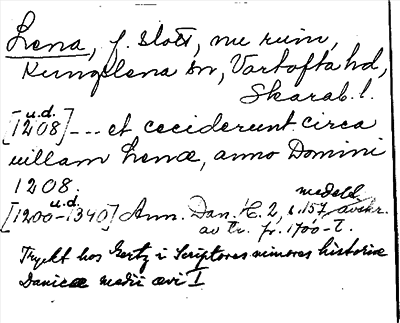 Lena, f. slott, nu ruin,
Kungslena sn, Vartofta hd,
Skarab. l.
u.d.
[1208] --- et ceciderunt circa
uillam Lenæ, anno Domini
1208.
u.d.
[1200-1340] Ann. Dan. H. 2, s. 157, avskr.
medeltd
av tr. fr. 1700-t.
Tryckt hos Gertz i Scriptores minores historiæ
Danicæ medii ævi I